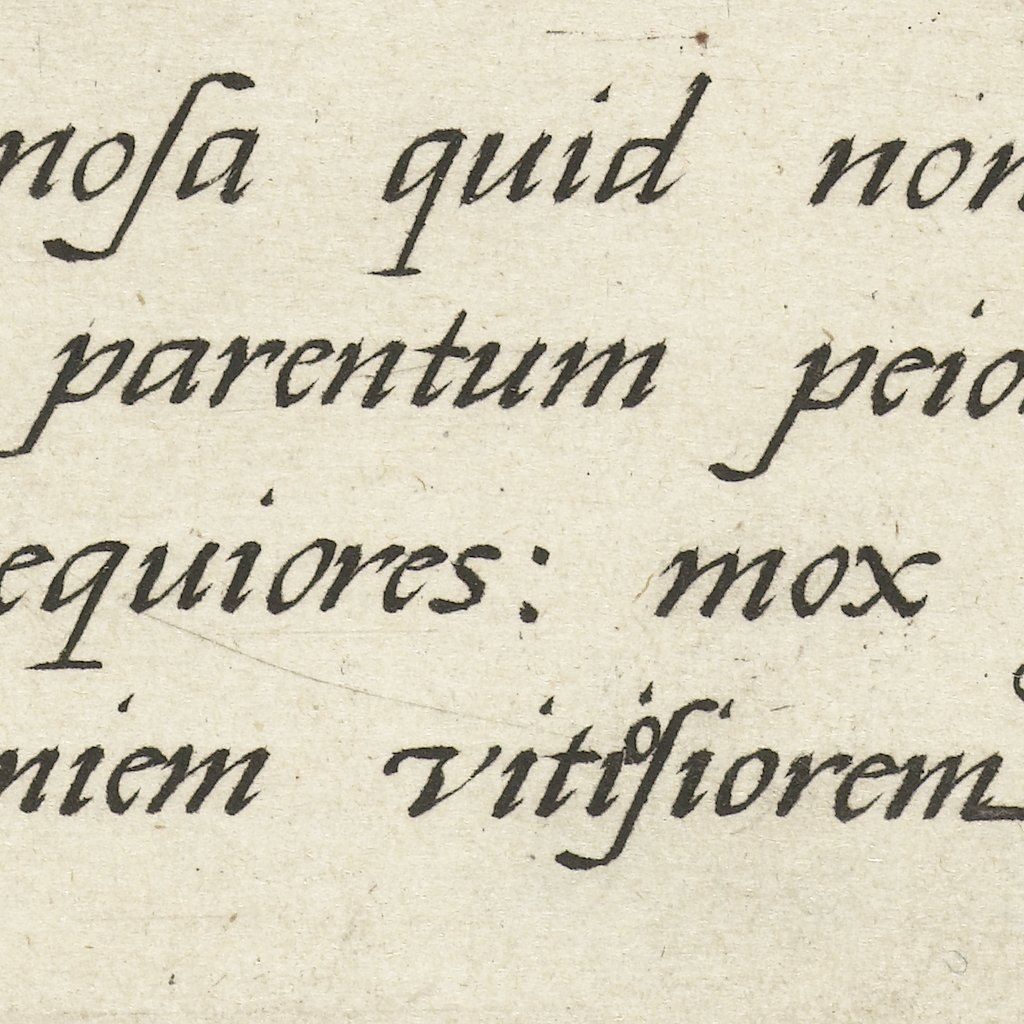 noſa quid non
parentum peio
equiores: mox
niem vitioſiorem